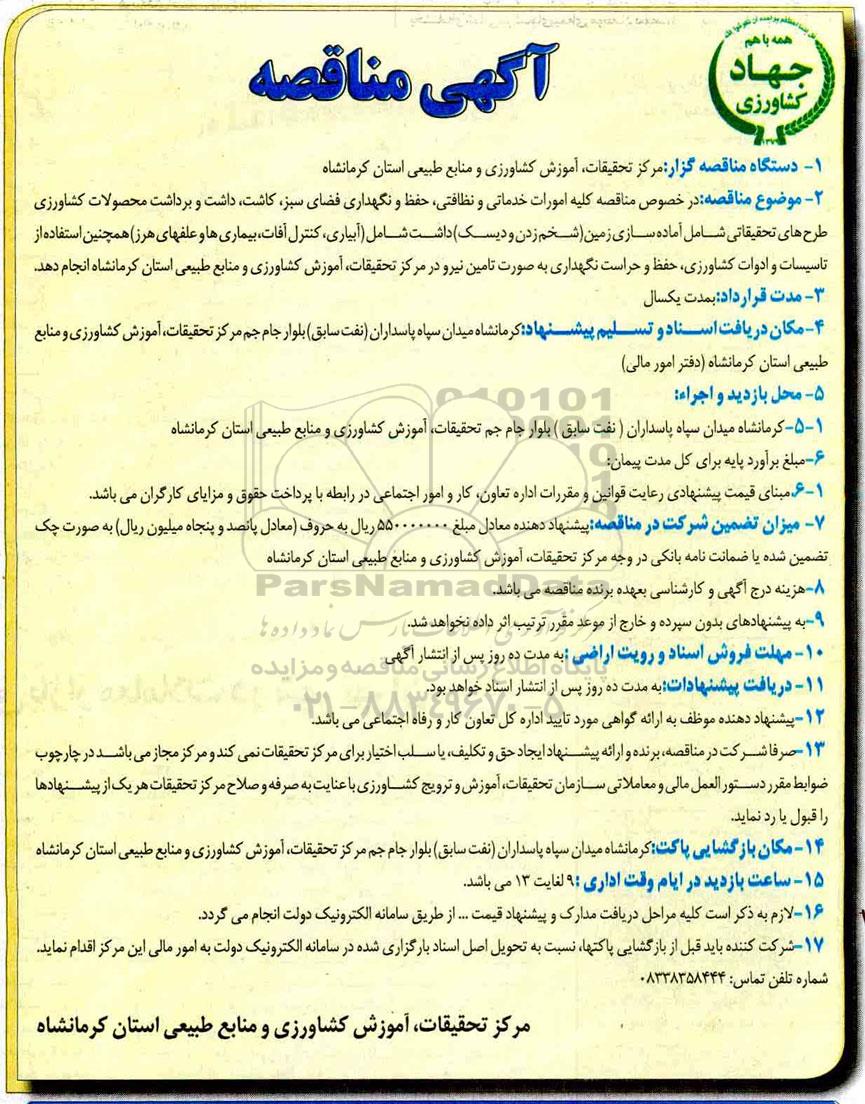 همه با هم
جهاد
کشاورزی
آگهی مناقصه
۱- دستگاه مناقصه گزار: مرکز تحقیقات، آموزش کشاورزی و منابع طبیعی استان کرمانشاه
۲- موضوع مناقصه: در خصوص مناقصه کلیه امورات خدماتی و نظافتی، حفظ و نگهداری فضای سبز، کاشت، داشت و برداشت محصولات کشاورزی
طرح های تحقیقاتی شامل آماده سازی زمین (شخم زدن و دیسک) داشت شامل (آبیاری، کنترل آفات، بیماری ها و علفهای هرز) همچنین استفاده از
تاسیسات و ادوات کشاورزی، حفظ و حراست نگهداری به صورت تامین نیرو در مرکز تحقیقات، آموزش کشاورزی و منابع طبیعی استان کرمانشاه انجام دهد.
۳- مدت قرارداد: بمدت یکسال
۴- مکان دریافت اسناد و تسلیم پیشنهاد: کرمانشاه میدان سپاه پاسداران (نفت سابق) بلوار جام جم مرکز تحقیقات، آموزش کشاورزی و منابع
طبیعی استان کرمانشاه (دفتر امور مالی)
۵- محل بازدید و اجراء:
۵-۱- کرمانشاه میدان سپاه پاسداران ( نفت سابق ) بلوار جام جم تحقیقات، آموزش کشاورزی و منابع طبیعی استان کرمانشاه
۶- مبلغ برآورد پایه برای کل مدت پیمان:
۶-۱. مبنای قیمت پیشنهادی رعایت قوانین و مقررات اداره تعاون، کار و امور اجتماعی در رابطه با پرداخت حقوق و مزایای کارگران می باشد.
۷- میزان تضمین شرکت در مناقصه: پیشنهاد دهنده معادل مبلغ ۵۵۰۰۰۰۰۰۰ ریال به حروف (معادل پانصد و پنجاه میلیون ریال) به صورت چک
تضمین شده یا ضمانت نامه بانکی در وجه مرکز تحقیقات، آموزش کشاورزی و منابع طبیعی استان کرمانشاه
۸- هزینه درج آگهی و کارشناسی بعهده برنده مناقصه می باشد.
۹- به پیشنهادهای بدون سپرده و خارج از موعد مقرر ترتیب اثر داده نخواهد شد.
۱۰- مهلت فروش اسناد و رویت اراضی : به مدت ده روز پس از انتشار آگهی
۱۱- دریافت پیشنهادات: به مدت ده روز پس از انتشار اسناد خواهد بود.
۱۲- پیشنهاد دهنده موظف به ارائه گواهی مورد تایید اداره کل تعاون کار و رفاه اجتماعی می باشد.
۱۳- صرفا شرکت در مناقصه، برنده و ارائه پیشنهاد ایجاد حق و تکلیف، یا سلب اختیار برای مرکز تحقیقات نمی کند و مرکز مجاز می باشد در چارچوب
ضوابط مقرر دستور العمل مالی و معاملاتی سازمان تحقیقات، آموزش و ترویج کشاورزی با عنایت به صرفه و صلاح مرکز تحقیقات هر یک از پیشنهادها
را قبول یا رد نماید.
۱۴- مکان بازگشایی پاکت: کرمانشاه میدان سپاه پاسداران (نفت سابق) بلوار جام جم مرکز تحقیقات، آموزش کشاورزی و منابع طبیعی استان کرمانشاه
۱۵- ساعت بازدید در ایام وقت اداری : ۹ لغایت ۱۳ می باشد.
۱۶- لازم به ذکر است کلیه مراحل دریافت مدارک و پیشنهاد قیمت ... از طریق سامانه الکترونیک دولت انجام می گردد.
۱۷- شرکت کننده باید قبل از بازگشایی پاکتها، نسبت به تحویل اصل اسناد بارگزاری شده در سامانه الکترونیک دولت به امور مالی این مرکز اقدام نماید.
شماره تلفن تماس: ۰۸۳۳۸۳۵۸۴۴۴
مرکز تحقیقات، آموزش کشاورزی و منابع طبیعی استان کرمانشاه
ParsNamadData
پایگاه اطلاع رسانی مناقصه و مزایده
۰۲۱-۸۸۳۴۹۶۷۰-۵